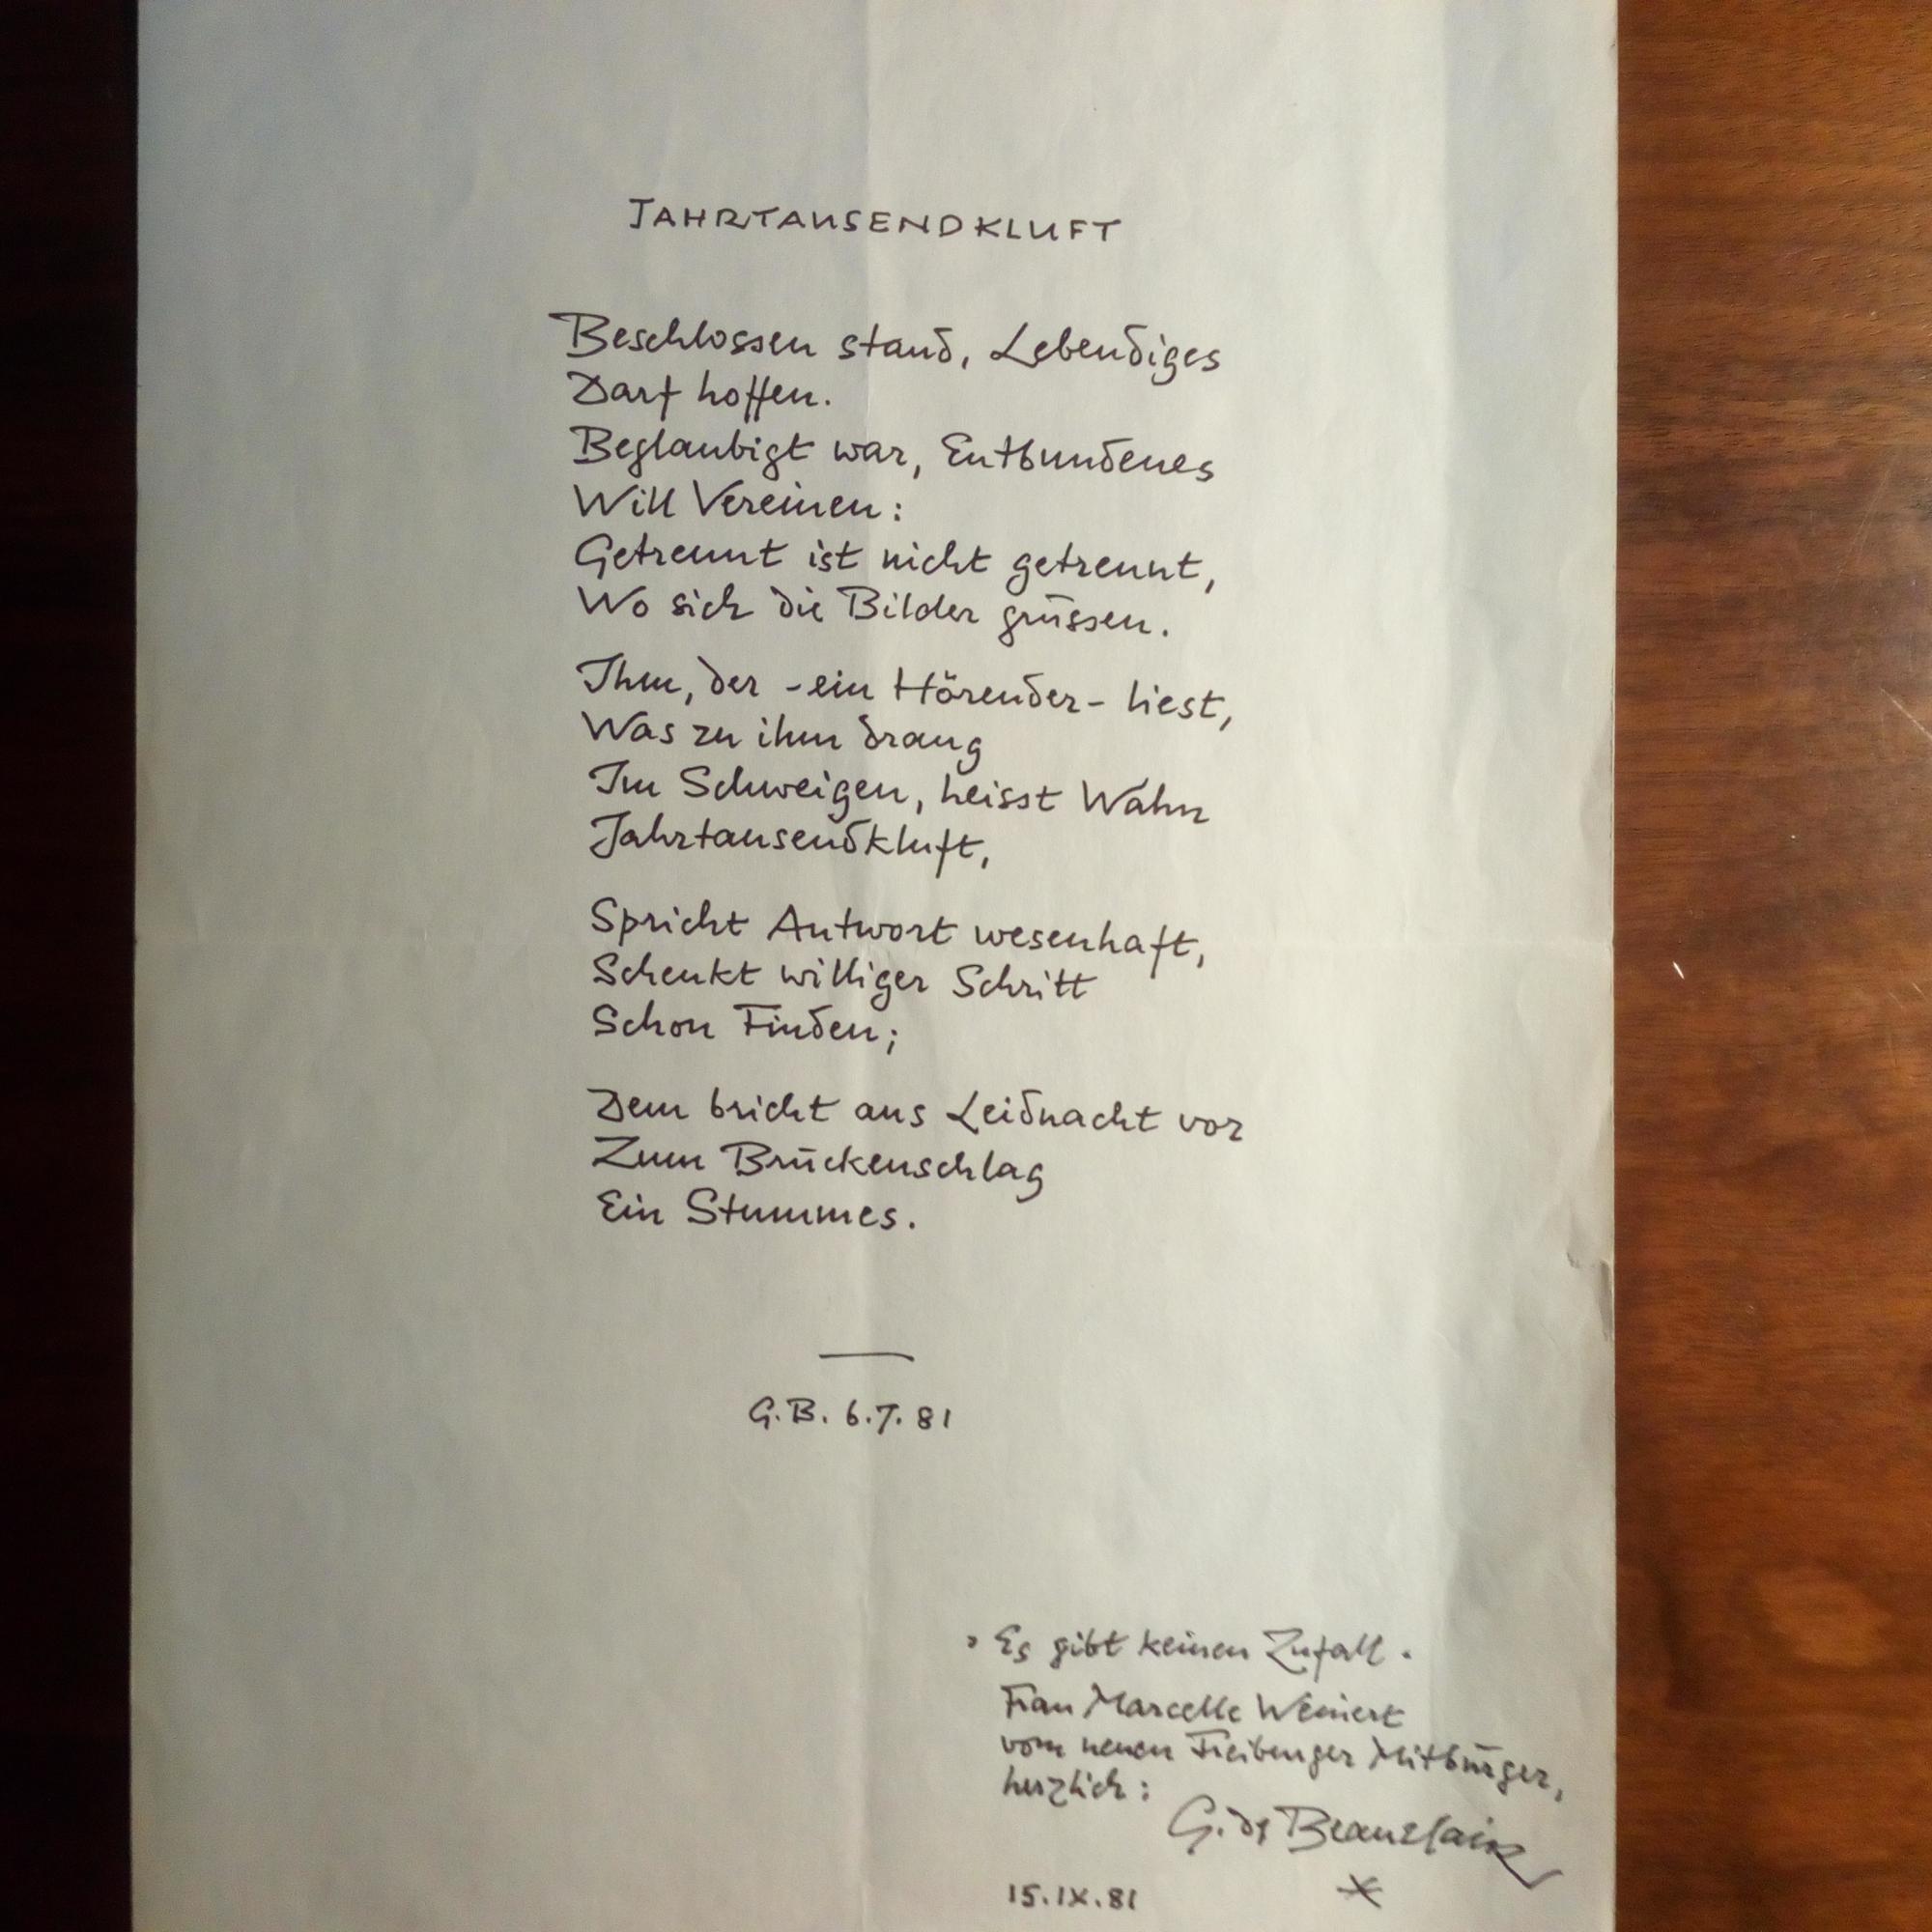 JAHRTAUSENDKLUFT
Beschlossen stand, Lebendiges
Darf hoffen.
Beglaubigt war, Entbundenes
Will Vereinen:
Getrennt ist nicht getrennt,
Wo sich die Bilder grüssen.
Ihm, der - ein Hörender - liest,
Was zu ihm drang
Im Schweigen, heisst Wahn
Jahrtausendkluft,
Spricht Antwort wesenhaft,
Schenkt williger Schritt
Schon Finden;
Dem bricht aus Leidnacht vor
Zum Brückenschlag
Ein Stummes.
G.B. 6.7.81
Es gibt keinen Zufall.
Frau Marcelle Weinert
vom neuen Freiburger Mitbürger,
herzlich:
G. de Beauclair
15.IX.81